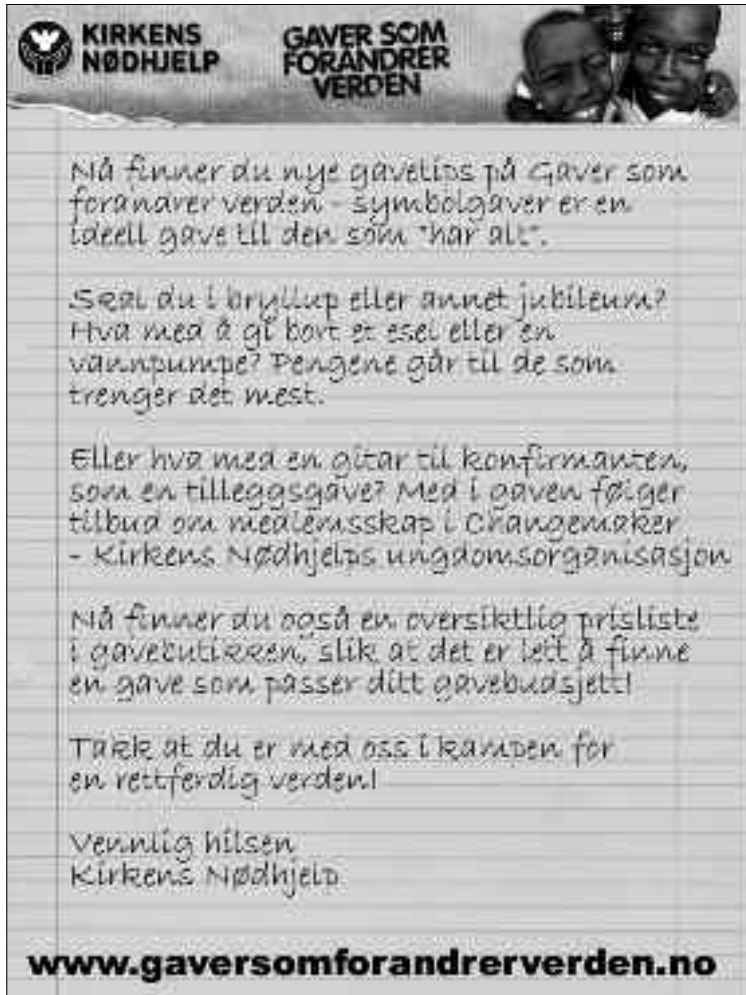 KIRKENS
NØDHJELP
GAVER SOM
FORANDRER
VERDEN
Nå finner du nye gavetips på Gaver som
forandrer verden - symbolgaver er en
ideell gave til den som "har alt".
Skal du i bryllup eller annet jubileum?
Hva med å gi bort et esel eller en
vannpumpe? Pengene går til de som
trenger det mest.
Eller hva med en gitar til konfirmanten,
som en tilleggsgave? Med i gaven følger
tilbud om medlemsskap i Changemaker
- Kirkens Nødhjelps ungdomsorganisasjon
Nå finner du også en oversiktlig prisliste
i gavebutikken, slik at det er lett å finne
en gave som passer ditt gavebudsjett!
Takk at du er med oss i kampen for
en rettferdig verden!
Vennlig hilsen
Kirkens Nødhjelp
www.gaversomforandrerverden.no